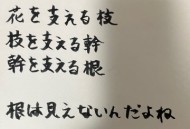 花を支える枝
枝を支える幹
幹を支える根
根は見えないんだよね